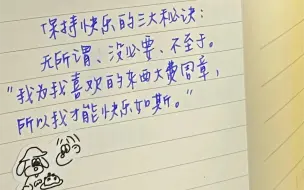 保持快乐的三大秘诀:
无所谓、没必要、不至于。
"我为我喜欢的东西大费周章,
所以我才能快乐如斯。"